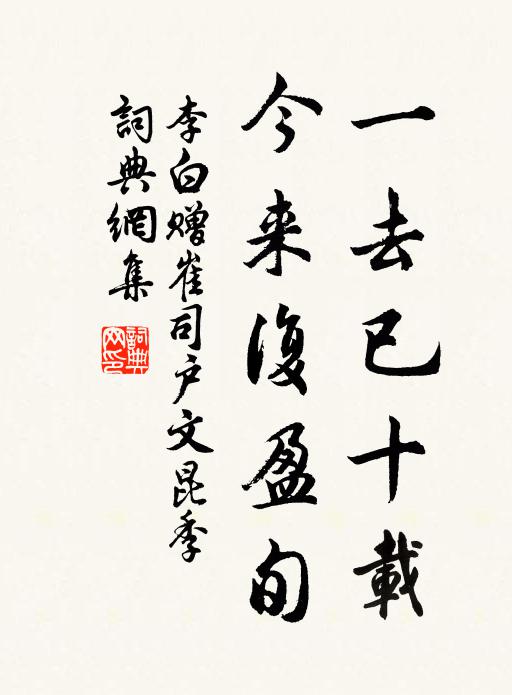 一去已十載
今来復盈旬
李白贈崔司户文昆季
詞典網集
詞典
网印